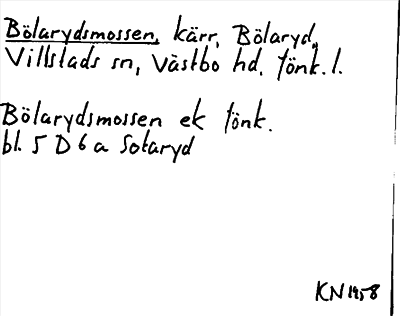 Bölarydsmossen, kärr, Bölaryd,
Villstads sn, Västbo hd. Jönk. l.
Bölarydsmossen ek Jönk.
bl. 5 D 6 a Sotaryd
KN 1958